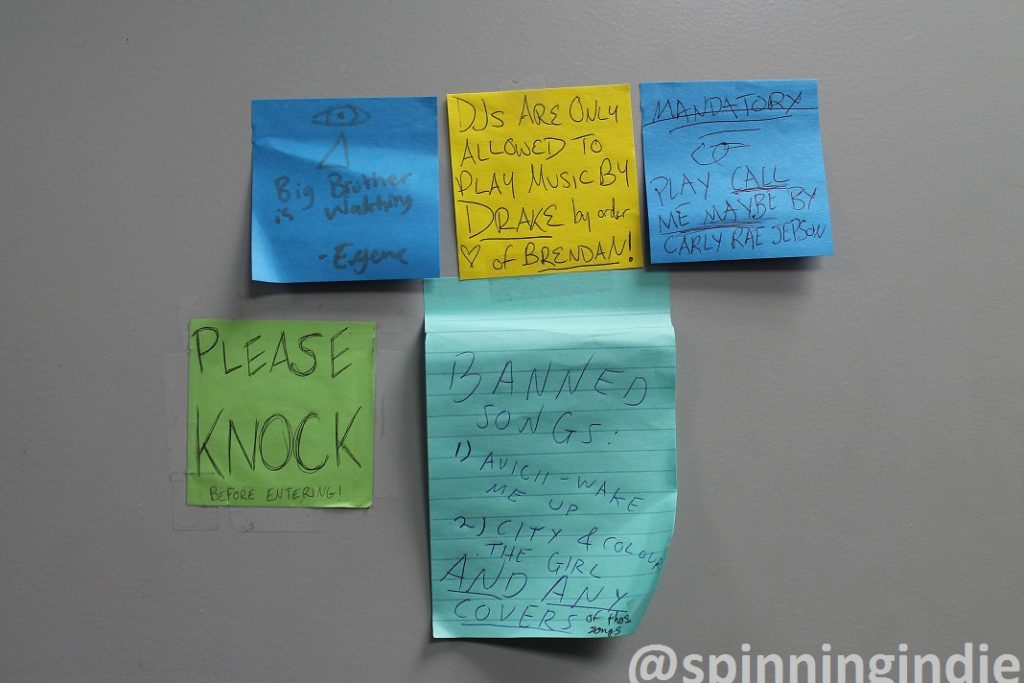 Big Brother
is Watching
- Eugene
DJs ARE ONLY
ALLOWED TO
PLAY MUSIC BY
DRAKE by order
♡ of BRENDAN!
MANDATORY
PLAY CALL
ME MAYBE BY
CARLY RAE JEPSON
PLEASE
KNOCK
BEFORE ENTERING!
BANNED
SONGS:
1) AVICII - WAKE
ME UP
2) CITY & COLOUR
THE GIRL
AND ANY
COVERS of those
songs
@spinningindie